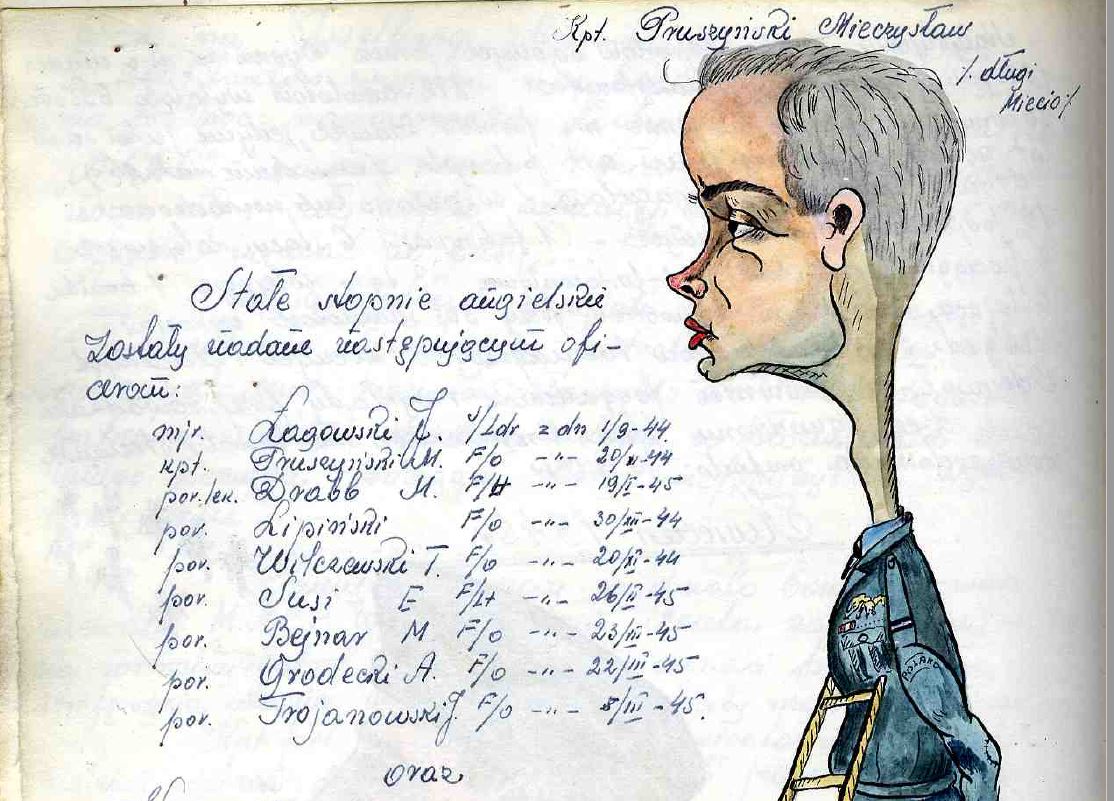 Kpt. Pruszyński Mieczysław
/. długi
Miecio/
Stałe stopnie angielskie
Zostały nadane następującym ofi-
cerom:
mjr. Łagowski J. S/Ldr z dn 1/9-44.
kpt. Pruszyński M. F/o -"- 20/XI-44
por./lek. Drabb M. F/Lt -"- 19/I-45
por. Lipiński F/o -"- 30/XII-44
por. Wilczewski T. F/o -"- 20/XI-44
por. Susi E F/Lt -"- 26/II-45
por. Bejnar M F/o -"- 23/III-45
por. Grodecki A. F/o -"- 22/III-45
por. Trojanowski J. F/o -"- 8/III-45.
oraz
POLAND